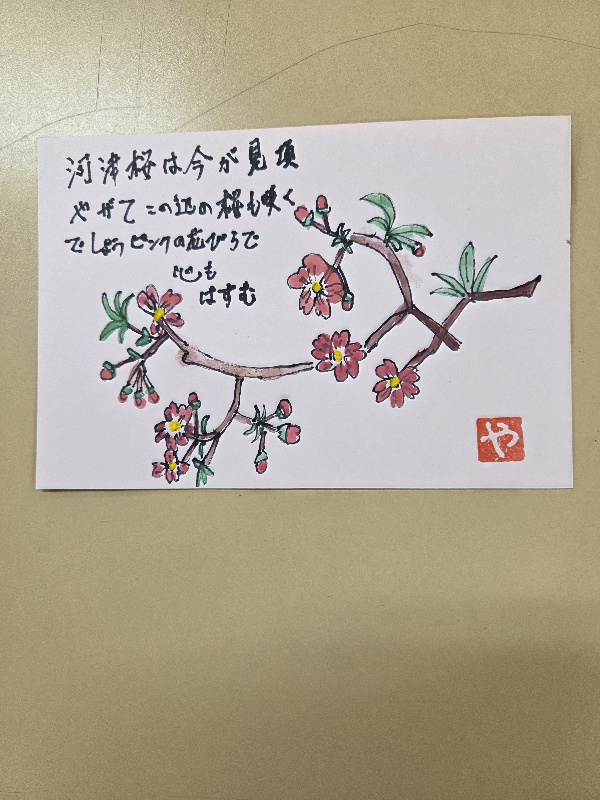 河津桜は今が見頃
やがてこの辺の桜も咲く
でしょうピンクの花びらで
心も
はずむ
や